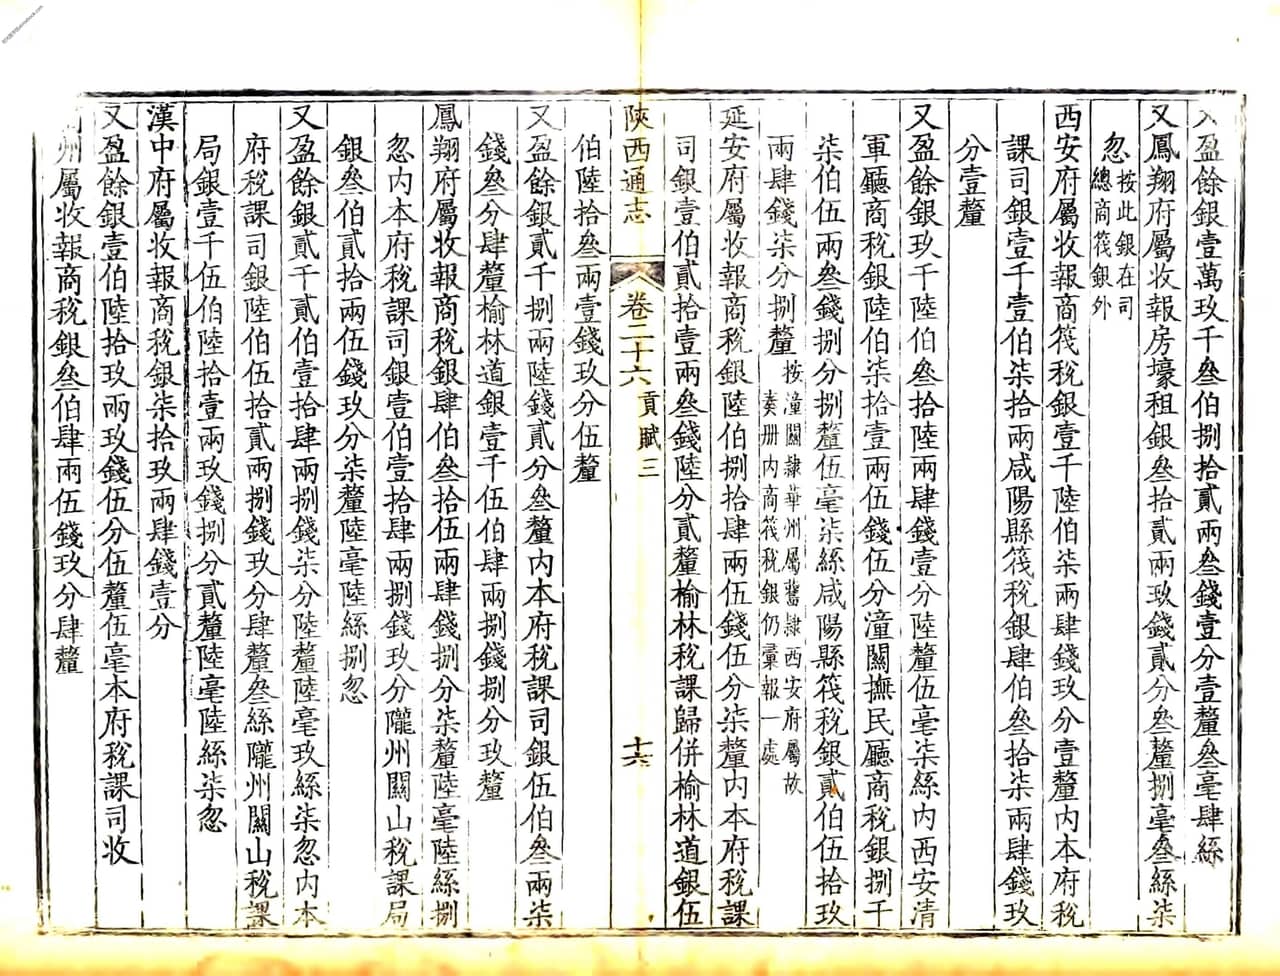 又盈餘銀壹萬玖千叁伯捌拾貳兩叁錢壹分壹釐叁毫肆絲
又鳳翔府屬收報房壕租銀叁拾貳兩玖錢貳分叁釐捌毫叁絲柒
忽按此銀在司總商筏銀外
西安府屬收報商筏稅銀壹千陸伯柒兩肆錢玖分壹釐內本府稅
課司銀壹千壹伯柒拾兩咸陽縣筏稅銀肆伯叁拾柒兩肆錢玖
分壹釐
又盈餘銀玖千陸伯叁拾陸兩肆錢壹分陸釐伍毫柒絲內西安清
軍廳商稅銀陸伯柒拾壹兩伍錢伍分潼關撫民廳商稅銀捌千
柒伯伍兩叁錢捌分捌釐伍毫柒絲咸陽縣筏稅銀貳伯伍拾玖
兩肆錢柒分捌釐按潼關隸華州屬舊隸西安府屬故奏册內商筏稅銀仍彙報一處
延安府屬收報商稅銀陸伯捌拾肆兩伍錢伍分柒釐內本府稅課
司銀壹伯貳拾壹兩叁錢陸分貳釐榆林稅課歸併榆林道銀伍
陝西通志 卷二十六 貢賦三 十六
伯陸拾叁兩壹錢玖分伍釐
又盈餘銀貳千捌兩陸錢貳分叁釐內本府稅課司銀伍伯叁兩柒
錢叁分肆釐榆林道銀壹千伍伯肆兩捌錢捌分玖釐
鳳翔府屬收報商稅銀肆伯叁拾伍兩肆錢捌分柒釐陸毫陸絲捌
忽內本府稅課司銀壹伯壹拾肆兩捌錢玖分隴州關山稅課局
銀叁伯貳拾兩伍錢玖分柒釐陸毫陸絲捌忽
又盈餘銀貳千貳伯壹拾肆兩捌錢柒分陸釐陸毫玖絲柒忽內本
府稅課司銀陸伯伍拾貳兩捌錢玖分肆釐叁絲隴州關山稅課
局銀壹千伍伯陸拾壹兩玖錢捌分貳釐陸毫陸絲柒忽
漢中府屬收報商稅銀柒拾玖兩肆錢壹分
又盈餘銀壹伯陸拾玖兩玖錢伍分伍釐伍毫本府稅課司收
州屬收報商稅銀叁伯肆兩伍錢玖分肆釐